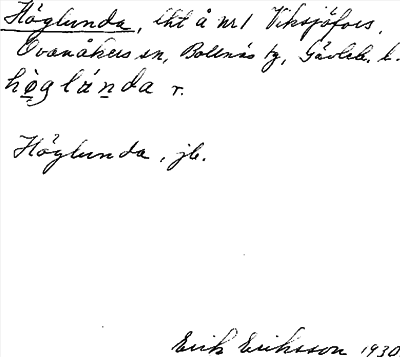 Höglunda, lht å nr 1 Viksjöfors,
Ovanåkers sn, Bollnäs tg, Gävleb. l.
hö̀glúnda r.
Höglunda, jb.
Erik Eriksson 1930